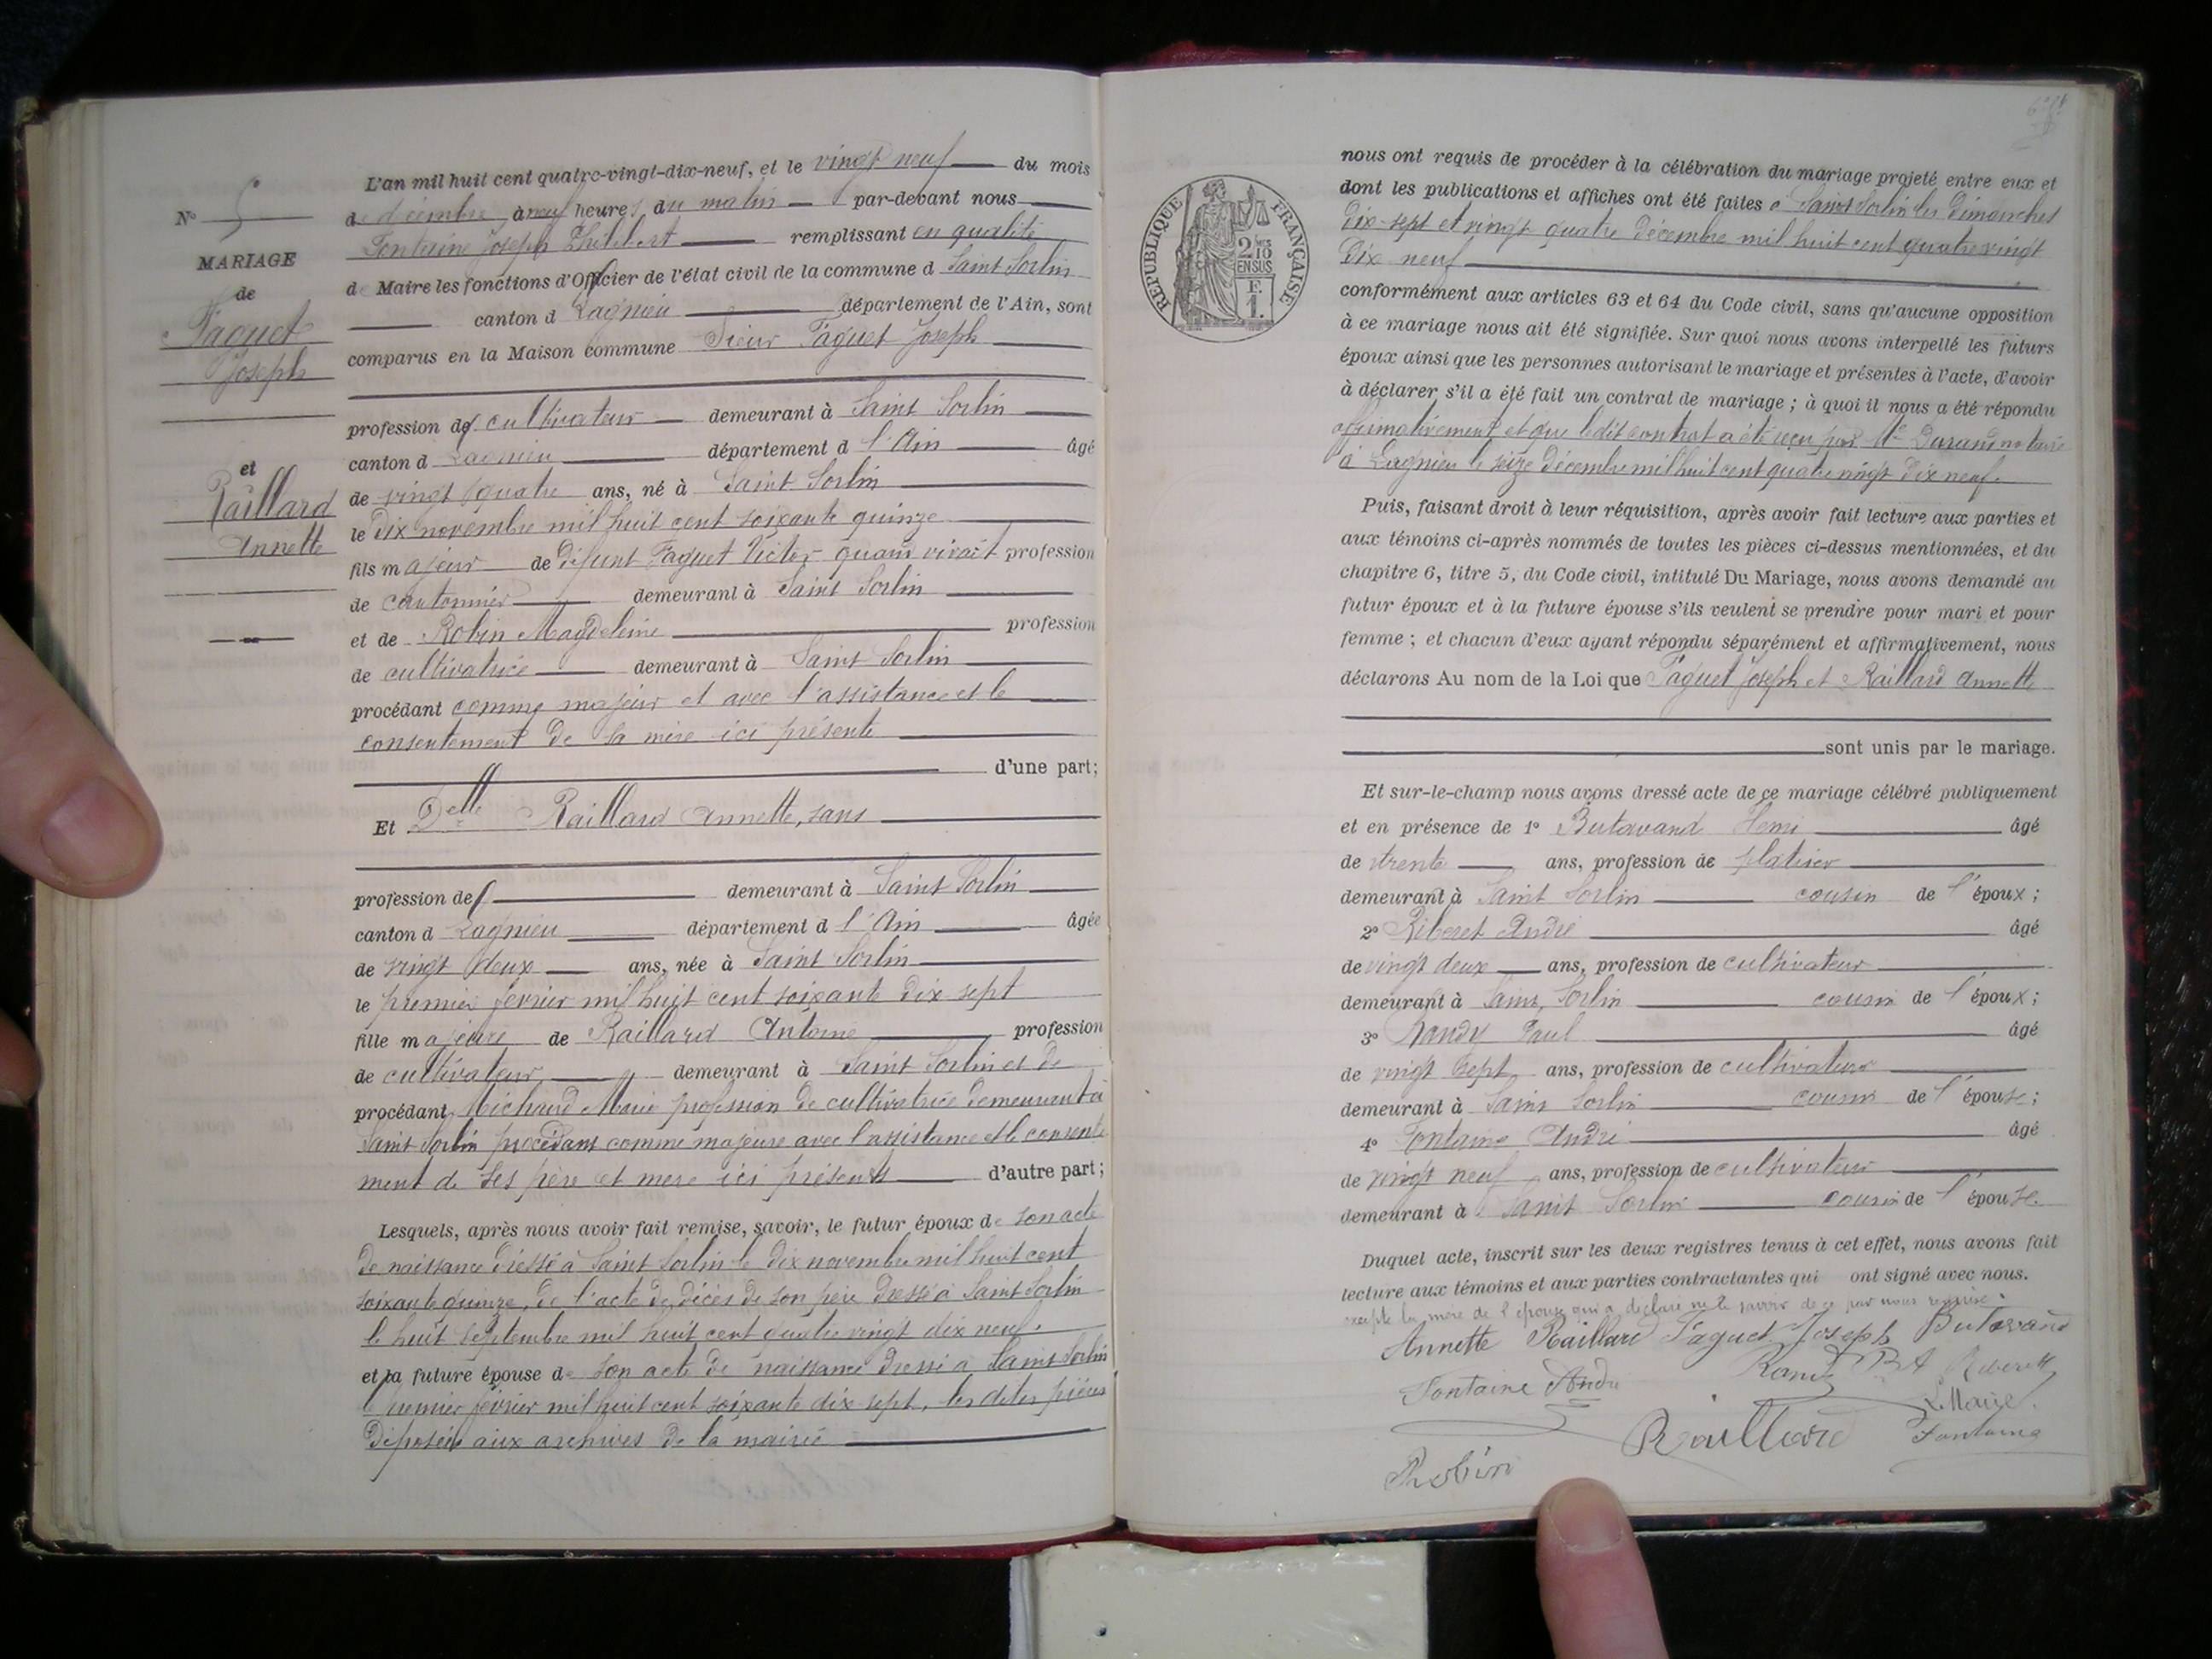 N° 5
MARIAGE
de
Faguet
Joseph
et
Raillard
Annette
L'an mil huit cent quatre-vingt-dix-neuf, et le vingt neuf du mois
de décembre à neuf heures du matin par-devant nous
Fontaine Joseph Philibert remplissant en qualité
de Maire les fonctions d'Officier de l'état civil de la commune d Saint Sorlin
canton d Lagnieu département de l'Ain, sont
comparus en la Maison commune Sieur Faguet Joseph
profession de cultivateur demeurant à Saint Sorlin
canton d Lagnieu département d l'Ain âgé
de vingt quatre ans, né à Saint Sorlin
le dix novembre mil huit cent soixante quinze
fils majeur de défunt Faguet Victor quand vivait profession
de cantonnier demeurant à Saint Sorlin
et de Robin Magdeleine profession
de cultivatrice demeurant à Saint Sorlin
procédant comme majeur et avec l'assistance et le
consentement de sa mère ici présente
d'une part;
Et Delle Raillard Annette, sans
profession de demeurant à Saint Sorlin
canton d Lagnieu département d l'Ain âgée
de vingt deux ans, née à Saint Sorlin
le premier février mil huit cent soixante dix sept
fille majeure de Raillard Antoine profession
de cultivateur demeurant à Saint Sorlin et de
procédant Michaud Marie profession de cultivatrice demeurant à
Saint Sorlin procédant comme majeure avec l'assistance et le consente
ment de ses père et mère ici présents d'autre part;
Lesquels, après nous avoir fait remise, savoir, le futur époux de son acte
de naissance dressé à Saint Sorlin le dix novembre mil huit cent
soixante quinze, de l'acte de décès de son père dressé à Saint Sorlin
le huit septembre mil huit cent quatre vingt dix neuf.
et la future épouse de son acte de naissance dressé à Saint Sorlin
le premier février mil huit cent soixante dix sept, les dites pièces
déposées aux archives de la mairie
RÉPUBLIQUE FRANÇAISE
2/10
EN SUS
F.
1.
nous ont requis de procéder à la célébration du mariage projeté entre eux et
dont les publications et affiches ont été faites à Saint Sorlin les Dimanches
dix-sept et vingt quatre décembre mil huit cent quatre vingt
dix neuf
conformément aux articles 63 et 64 du Code civil, sans qu'aucune opposition
à ce mariage nous ait été signifiée. Sur quoi nous avons interpellé les futurs
époux ainsi que les personnes autorisant le mariage et présentes à l'acte, d'avoir
à déclarer s'il a été fait un contrat de mariage; à quoi il nous a été répondu
affirmativement et que ledit contrat a été reçu par Me Durand notaire
à Lagnieu le seize décembre mil huit cent quatre vingt dix neuf.
Puis, faisant droit à leur réquisition, après avoir fait lecture aux parties et
aux témoins ci-après nommés de toutes les pièces ci-dessus mentionnées, et du
chapitre 6, titre 5, du Code civil, intitulé Du Mariage, nous avons demandé au
futur époux et à la future épouse s'ils veulent se prendre pour mari et pour
femme; et chacun d'eux ayant répondu séparément et affirmativement, nous
déclarons Au nom de la Loi que Faguet Joseph et Raillard Annette
sont unis par le mariage.
Et sur-le-champ nous avons dressé acte de ce mariage célébré publiquement
et en présence de 1° Butavand Rémi âgé
de trente ans, profession de platrier
demeurant à Saint Sorlin cousin de l'époux;
2° Riberet André âgé
de vingt deux ans, profession de cultivateur
demeurant à Saint Sorlin cousin de l'époux;
3° Randy Paul âgé
de vingt sept ans, profession de cultivateur
demeurant à Saint Sorlin cousin de l'épouse;
4° Fontaine André âgé
de vingt neuf ans, profession de cultivateur
demeurant à Saint Sorlin cousin de l'épouse.
Duquel acte, inscrit sur les deux registres tenus à cet effet, nous avons fait
lecture aux témoins et aux parties contractantes qui ont signé avec nous.
excepté la mère de l'épouse qui a déclaré ne le savoir de ce par nous requise.
Annette Raillard Faguet Joseph Butavand
Fontaine André Randy Riberet
Le Maire
Raillard Fontaine
Robin